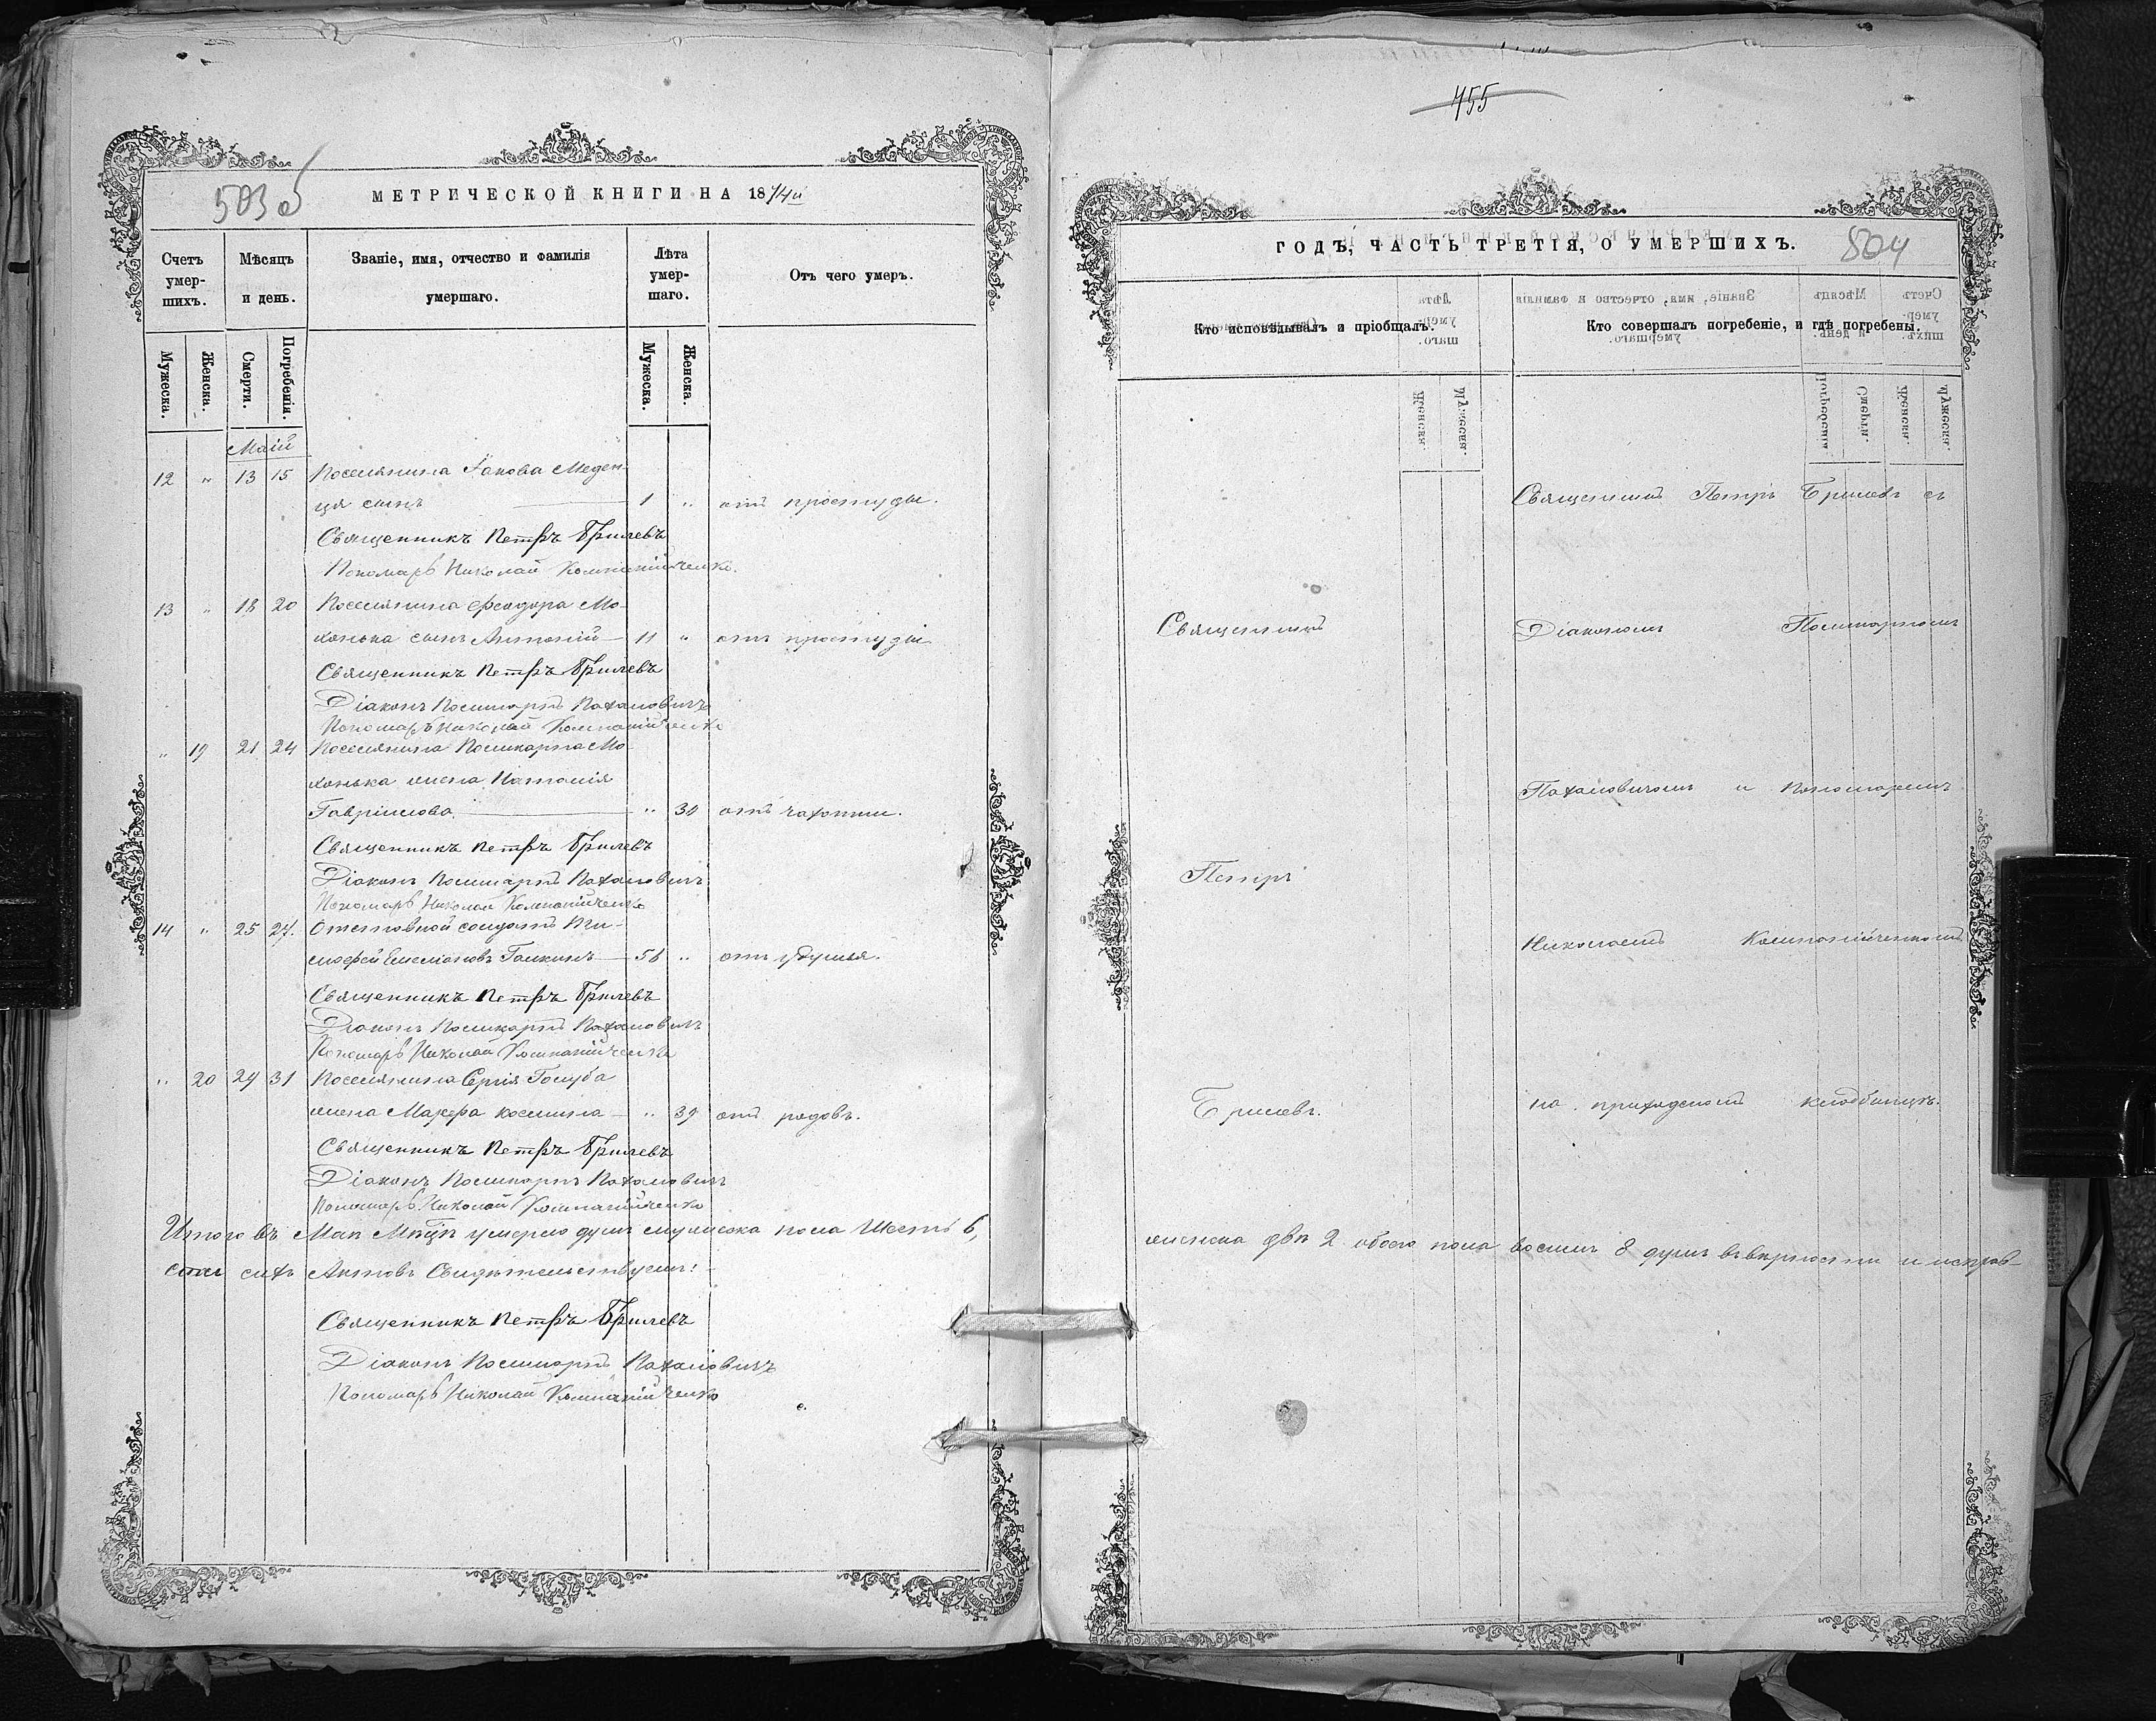 503 об
МЕТРИЧЕСКОЙ КНИГИ НА 1874й
Счетъ умер-шихъ.
Мѣсяцъ и день.
Званіе, имя, отчество и фамилія умершаго.
Лѣта умер-шаго.
Отъ чего умеръ.
Мужеска.
Женска.
Смерти.
Погребенія.
Мужеска.
Женска.
Маій
12 " 13 15 Поселянина Іакова Меден-
ця сынъ 1 " отъ простуды.
Священникъ Петръ Брилевъ
Пономарь Николай Компанійченко.
13 " 18 20 Поселянина Феодора Мо-
хонька сынъ Антоній 11 " отъ простуды
Священникъ Петръ Брилевъ
Діаконъ Поликарпъ Пахаловичъ
Пономарь Николай Компанійченко
" 19 21 24 Поселянина Поликарпа Мо-
хонька жена Наталія
Гавріилова " 30 отъ чахотки.
Священникъ Петръ Брилевъ
Діаконъ Поликарпъ Пахаловичъ
Пономарь Николай Компанійченко
14 " 25 27. Отставной солдатъ Ти-
мофей Емеліановъ Галкинъ 56 " отъ удушья.
Священникъ Петръ Брилевъ
Діаконъ Поликарпъ Пахаловичъ
Пономарь Николай Компанійченко
" 20 29 31 Поселянина Сергія Голуба
жена Марфа 39 отъ родовъ.
Священникъ Петръ Брилевъ
Діаконъ Поликарпъ Пахаловичъ
Пономарь Николай Компанійченко
Итого въ Маѣ Мѣсцѣ умерло душъ мужеска пола Шесть 6,
сихъ Актовъ Свидѣтельствуемъ:
Священникъ Петръ Брилевъ
Діаконъ Поликарпъ Пахаловичъ
Пономарь Николай Компанійченко
455
ГОДЪ, ЧАСТЬ ТРЕТІЯ, О УМЕРШИХЪ.
504
Кто исповѣдывалъ и пріобщалъ.
Кто совершалъ погребеніе, и гдѣ погребены.
Священникъ Петръ Брилевъ съ
Священникъ
Діакономъ Поликарпомъ
Пахаловичомъ и Пономаремъ
Петръ
Николаемъ Компанійченкомъ
Брилевъ.
на приходскомъ кладбищѣ.
женска двѣ 2 обоего пола восемь 8 душъ въ вѣрности и исправ-